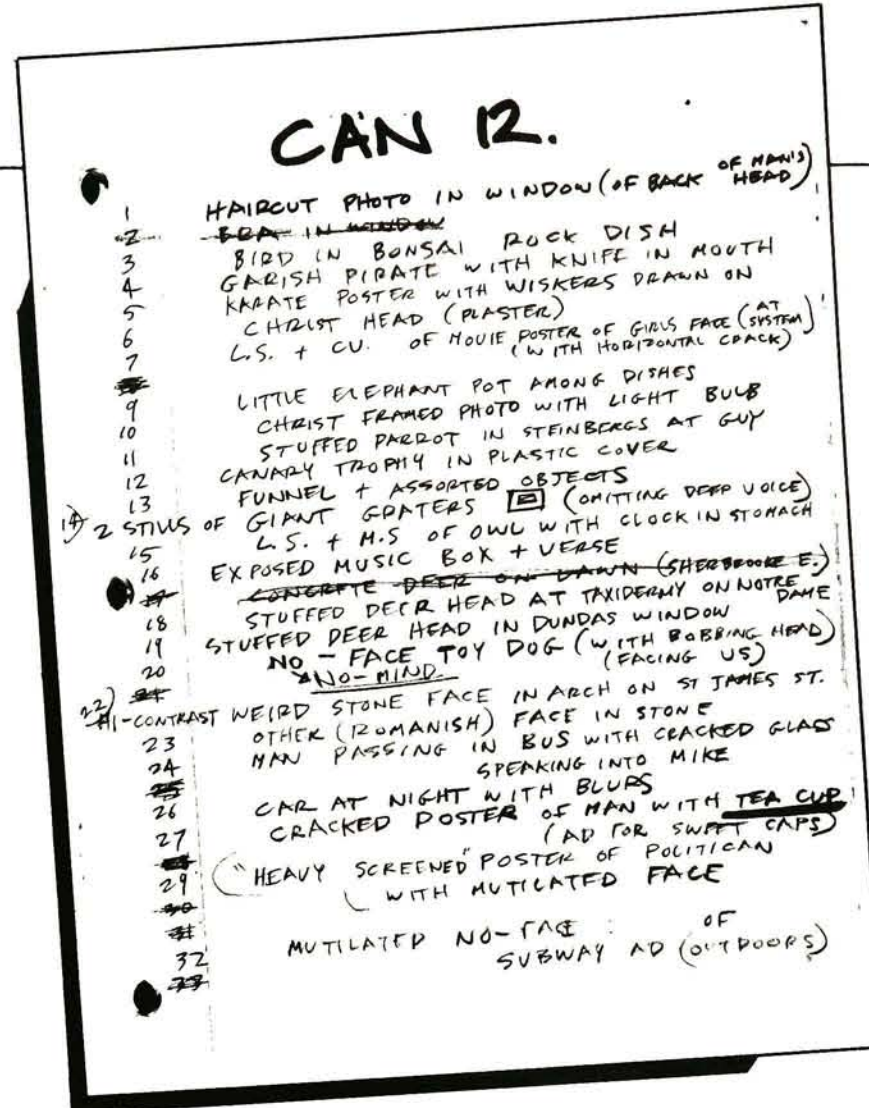 CAN 12.
1 HAIRCUT PHOTO IN WINDOW (OF BACK OF MAN'S HEAD)
2 BRA IN WINDOW
3 BIRD IN BONSAI ROCK DISH
4 GARISH PIRATE WITH KNIFE IN MOUTH
5 KARATE POSTER WITH WISKERS DRAWN ON
6 CHRIST HEAD (PLASTER)
7 L.S. + CU. OF MOVIE POSTER OF GIRLS FACE (AT SYSTEM)
(WITH HORIZONTAL CRACK)
9 LITTLE ELEPHANT POT AMONG DISHES
10 CHRIST FRAMED PHOTO WITH LIGHT BULB
11 STUFFED PARROT IN STEINBERGS AT GUY
12 CANARY TROPHY IN PLASTIC COVER
13 FUNNEL + ASSORTED OBJECTS
14) 2 STILLS OF GIANT GRATERS (OMITTING DEEP VOICE)
15 L.S. + M.S OF OWL WITH CLOCK IN STOMACH
16 EXPOSED MUSIC BOX + VERSE
17 CONCRETE DEER ON LAWN (SHERBROOKE E.)
18 STUFFED DEER HEAD AT TAXIDERMY ON NOTRE DAME
19 STUFFED DEER HEAD IN DUNDAS WINDOW
20 NO-FACE TOY DOG (WITH BOBBING HEAD)
(FACING US)
21 NO-MIND
22) HI-CONTRAST WEIRD STONE FACE IN ARCH ON ST JAMES ST.
23 OTHER (ROMANISH) FACE IN STONE
24 MAN PASSING IN BUS WITH CRACKED GLASS
25 SPEAKING INTO MIKE
26 CAR AT NIGHT WITH BLURS
27 CRACKED POSTER OF MAN WITH TEA CUP
(AD FOR SWEET CAPS)
29 ("HEAVY SCREENED" POSTER OF POLITICAN
30 WITH MUTILATED FACE
31
32 MUTILATED NO-FACE : OF
33 SUBWAY AD (OUTDOORS)